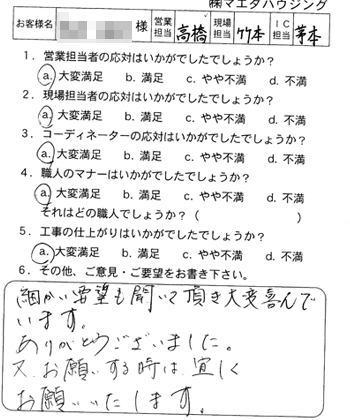 ㈱マエダハウジング
お客様名 様 営業担当 高橋 現場担当 竹本 IC担当 茅本
1．営業担当者の応対はいかがでしたでしょうか？
a. 大変満足 b. 満足 c. やや不満 d. 不満
2．現場担当者の応対はいかがでしたでしょうか？
a. 大変満足 b. 満足 c. やや不満 d. 不満
3．コーディネーターの応対はいかがでしたでしょうか？
a. 大変満足 b. 満足 c. やや不満 d. 不満
4．職人のマナーはいかがでしたでしょうか？
a. 大変満足 b. 満足 c. やや不満 d. 不満
それはどの職人でしょうか？（ ）
5．工事の仕上がりはいかがでしたでしょうか？
a. 大変満足 b. 満足 c. やや不満 d. 不満
6．その他、ご意見・ご要望をお書き下さい。
細かい要望も聞いて頂き大変喜んで
います。
ありがとうございました。
又、お願いする時は宜しく
お願いいたします。